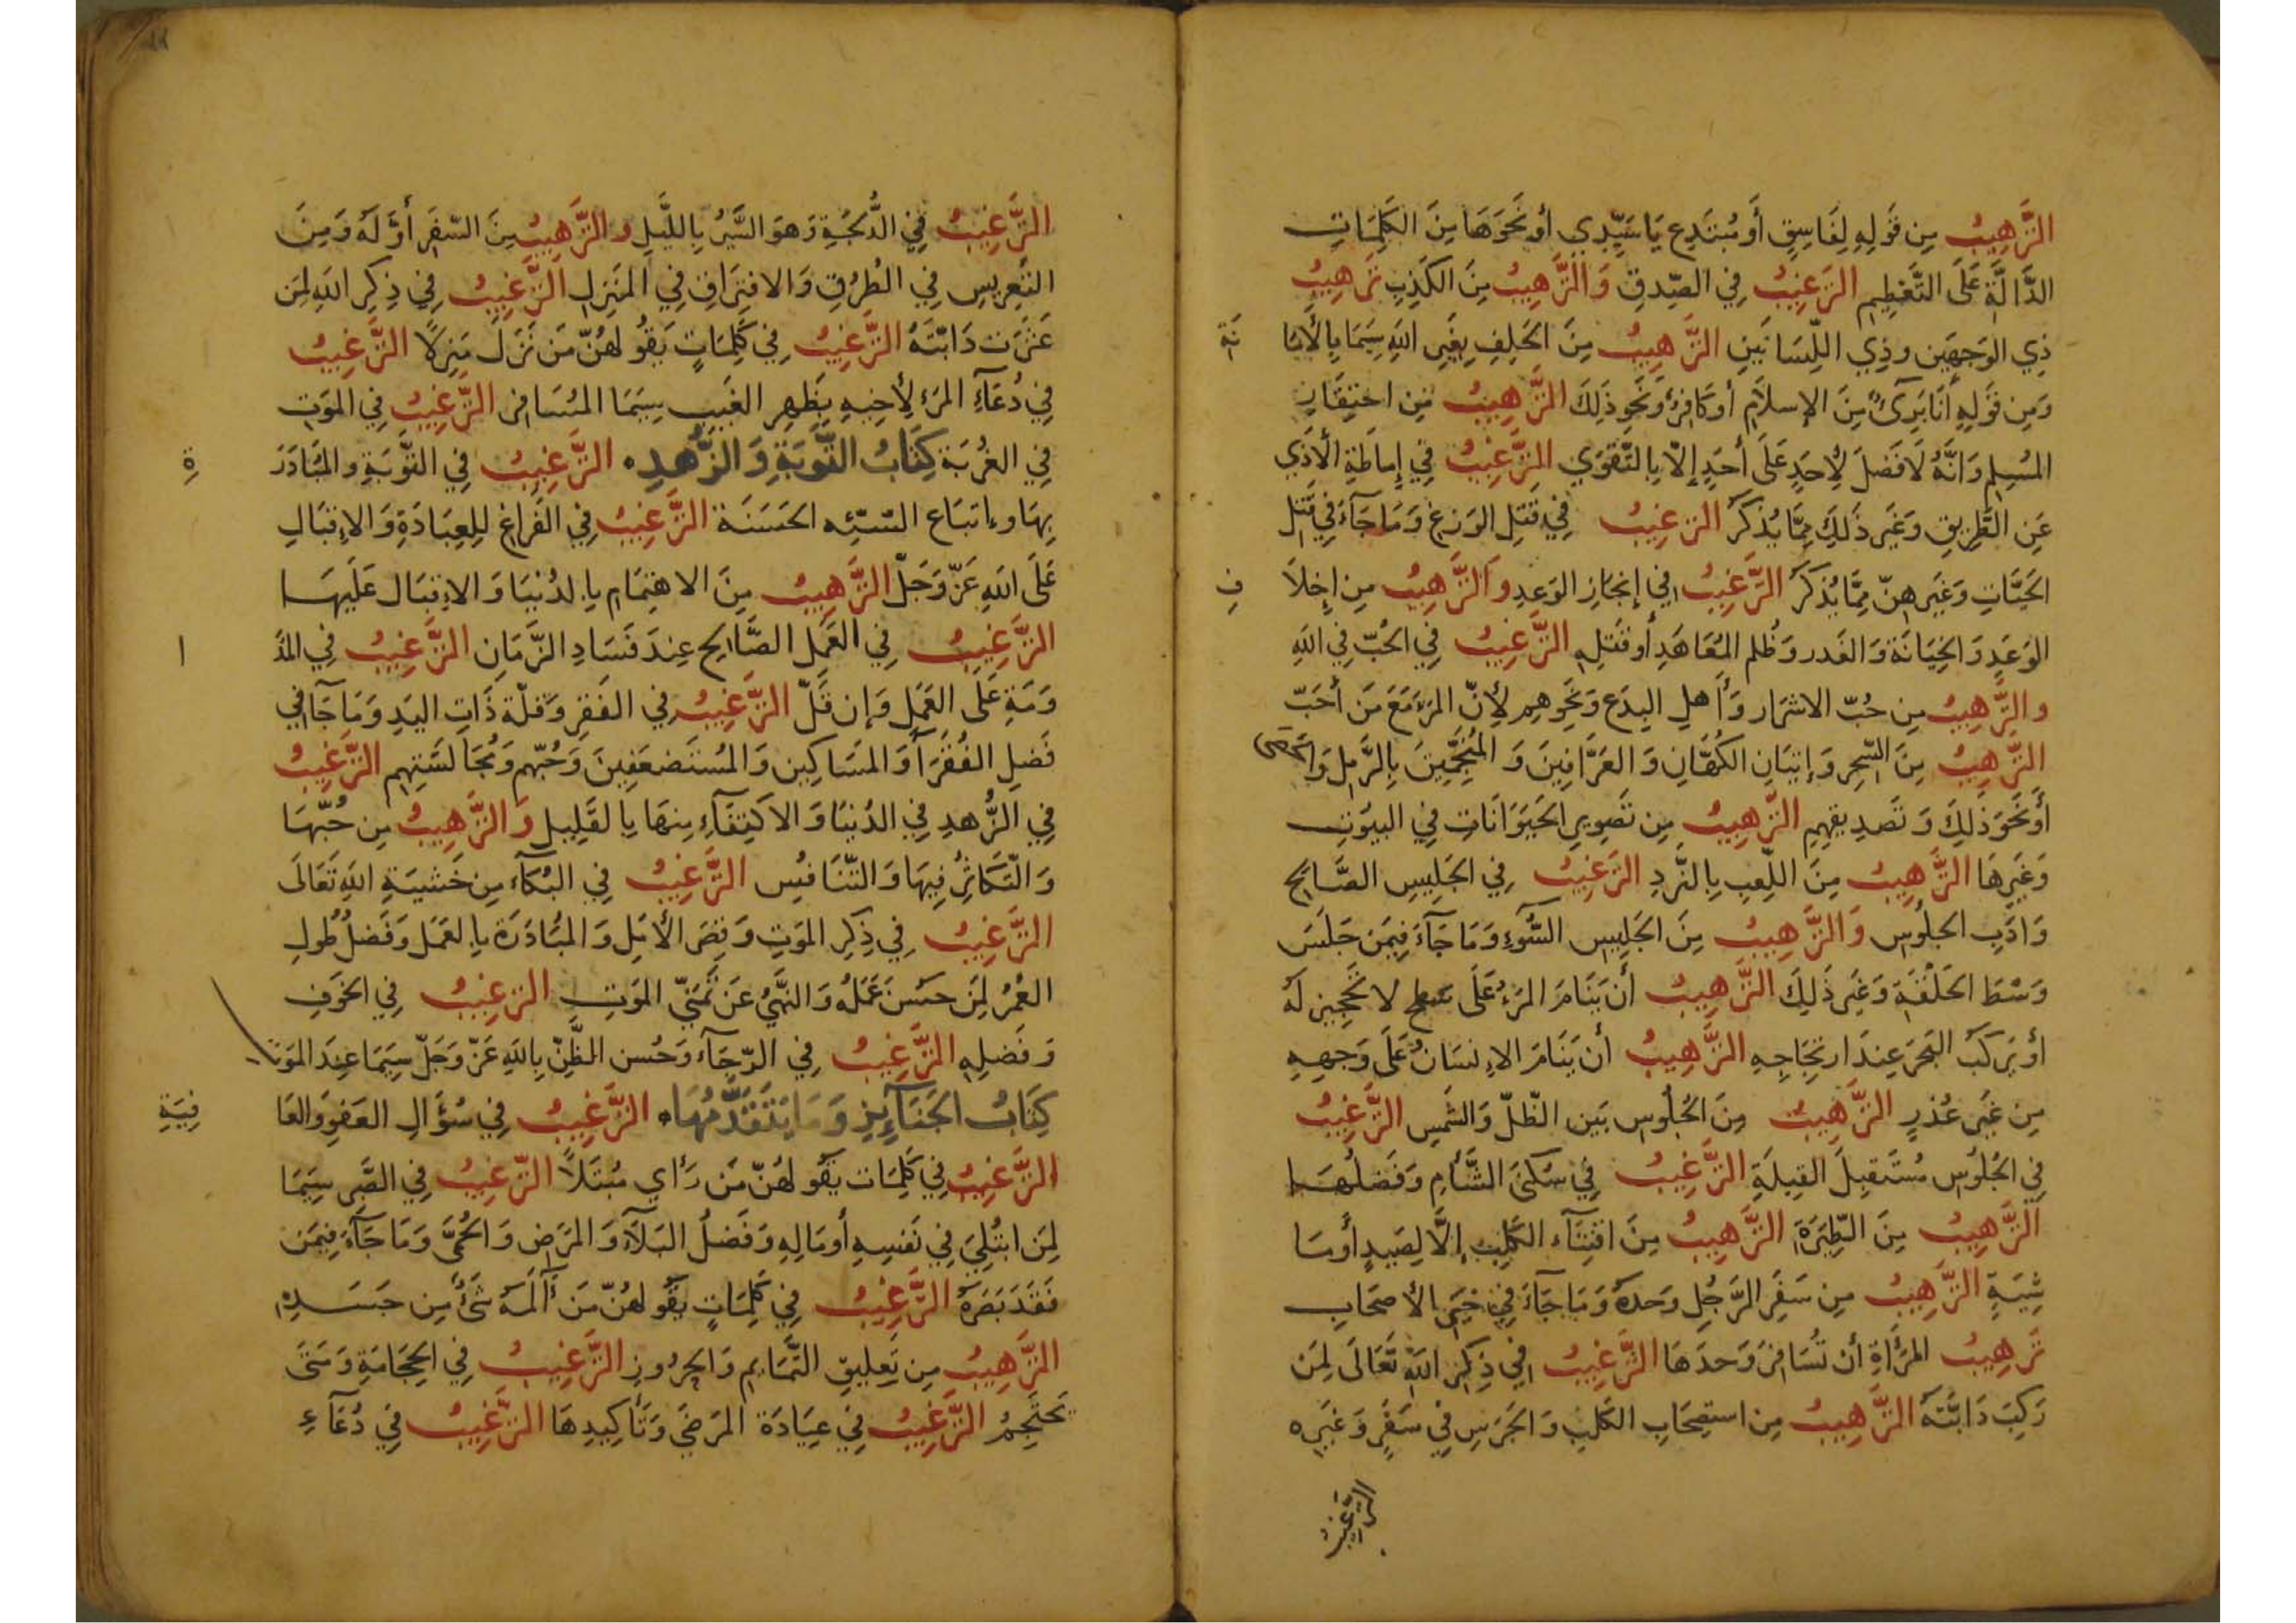 التَّرهِيبُ مِن قَولِهِ لِفَاسِقٍ أَو مُبتَدِعٍ يَا سَيِّدِي أو نَحَوَهَا مِنَ الكَلِمَاتِ
الدَّالَّةِ عَلَى التَّعظِيمِ التَّرغِيبُ فِي الصِّدقِ وَالتَّرهِيبُ مِنَ الكَذِبِ تَرهِيبُ
ذِي الوَجهَين وذِي اللِّسَانَينِ التَّرهِيبُ مِنَ الحَلِفِ بِغَيرِ اللهِ سِيَمَا بِالأَمَا نَة
وَمِن قَولِهِ أَنَا بَرِىٌٔ مِنَ الإِسلَامِ أو كَافِرٌ وَنَحوِ ذَلِكَ التَّرهِيبُ مِن احتِقَارِ
المُسلِمِ وَانَّهُ لَا فَضلَ لِأَحَدٍ عَلَى أَحَدٍ إلّا بِالتَّقوَي التَّرغِيبُ فِي إِمَاطَةِ الأَذَي
عَنِ الطَّرِيقِ وَغَيرَ ذَلِكَ مِمَّا يُذكَرُ التَّرغِيبُ فِي قَتلِ الوَزَغِ وَمَا جَآءَ فِي قَتلِ
الحَيَّاتِ وَغَيرِهِنّ مِمَّا يُذكَرَ التَّرغِيبُ فِي إِنجَازِ الوَعدِ وَالتَّرهِيبُ مِن إِخلَا فِ
الوَعدِ وَالخِيَانَة وَالغَدر وَظُلمِ المُعَاهَدِ أو قَتلِهِ التَّرغِيبُ فِي الحُبّ فِي اللهِ
والتَّرهِيبُ مِن حُبّ الاشرَار وَأَهلِ البِدَع وَنَحوِهِم لأَنّ المَرءَ مَعَ مَن أَحَبّ
التَّرهِيبُ مِنَ السِّحِر وَإتيَانِ الكُهَّانِ وَالعَرَّافِينَ وَالمُنَجِّمِينَ بِالرَّمل وَالحَصَى
أَو نَحَو ذَلِكَ وَتَصدِيقِهِم التَّرهِيبُ مِن تَصوِيرِ الحَيَوَانَاتِ فِي البيُوتِ
وَغَيرِهَا التَّرهِيبُ مِنَ اللَّعِبِ بِالنَّردِ التَّرغِيبُ فِي الجَلِيسِ الصَّالِحِ
وَادَبِ الجلُوس وَالتَّرهِيبُ مِنَ الجَلِيسِ السُّوءِ وَمَا جَآءَ فِيمَن جَلَسَ
وَسْطَ الحَلْقَةِ وَغَيرَ ذَلِكَ التَّرهِيبُ أَن يَنَامَ المَرءُ عَلَى سَطح لا تَحجِيز لَهُ
أو يَركَبَ البَحرَ عِندَ ارتِجَاجِهِ التَّرهِيبُ أَن يَنَامَ الإِنسَانُ عَلَى وَجهِهِ
مِن غَيرِ عُذرٍ التَّرهِيبُ مِنَ الجُلُوس بَين الظّلّ وَالشَّمسِ التَّرغِيبُ
فِي الجُلُوس مُستَقبِلَ القِبلَةِ التَّرغِيبُ فِي سُكنَى الشَّأمِ وَفَضلُهَا
التَّرهِيبُ مِنَ الطِّيَرَةِ التَّرهِيبُ مِنَ اقتِنَآءِ الكَلبِ إلَّا لِصَيدٍ أو مَا
شِيَةٍ التَّرهِيبُ مِن سَفَرِ الرَّجُلِ وَحدَهُ وَمَا جَآءَ فِي خَيرِ الأَصحَابِ
تَرهِيبُ المَرأَةِ أن تُسَافِرَ وَحدَهَا التَّرغِيبُ فِي ذِكرِ اللهِ تَعَالَى لِمَن
رَكِبَ دَابَّتَهُ التَّرهِيبُ مِن استِصحَابِ الكَلبِ وَالجَرَسِ فِي سَفَرٍ وَغَيرِهِ
التَّرغِيبُ
التَّرغِيبُ فِي الدُّلجَةِ وَهوَ السَّيرُ بِاللَّيلِ والتَّرهِيبُ مِنَ السّفَرِ أوَّلَهُ وَمِنَ
التَّعرِيسِ فِي الطُرُقِ وَالافتِرَاقِ فِي المَنزِلِ التَّرغِيبُ فِي ذِكرِ اللهِ لِمَن
عَثَرَت دَابّتَهُ التَّرغِيبُ فِي كَلِمَاتٍ يَقُولهُنّ مَن نَزَلَ مَنزِلًا التَّرغِيبُ
فِي دُعَآءِ المَرءِ لأَخِيهِ بِظَهرِ الغَيبِ سِيَمَا المُسَافِر التَّرغِيبُ فِي المَوتِ
فِي الغُربَة كِتَابُ التَّوبَةِ وَالزُّهدِ التَّرغِيبُ فِي التَّوبَةِ والمُبَادَرَ ةِ
بِهَا وإتبَاع السّيّئه الحَسَنَة التَّرغِيبُ فِي الفَرَاغِ لِلعِبَادَةِ وَالإِقبَالِ
عَلَى اللهِ عَزّ وَجَلّ التَّرهِيبُ مِنَ الاهتِمَامِ بِالدُنيَا وَالإِقبَال عَلَيهَا
التَّرغِيبُ فِي العَمَلِ الصَّالِح عِندَ فَسَادِ الزَّمَانِ التَّرغِيبُ فِي المُدَ ا
وَمَةِ عَلَى العَمَلِ وَإن قَلّ التَّرغِيبُ فِي الفَقرِ وَقلّة ذَاتِ اليَدِ وَمَا جَآ فِي
فَضلِ الفُقَرَآ وَالمَسَاكِين وَالمُستَضعَفِينَ وَحُبّهم وَمُجَالَسَتِهِم التَّرغِيبُ
فِي الزُّهدِ فِي الدُنيَا وَالاكتِفَآءِ مِنهَا بِالقَلِيلِ وَالتَّرهِيبُ مِن حُبّهَا
وَالتَّكَاثُرِ فِيهَا وَالتّنَافُسِ التَّرغِيبُ فِي البُكَآءِ مِن خَشيَةِ اللهِ تَعَالَى
التَّرغِيبُ فِي ذِكرِ المَوتِ وَقِصَرِ الأَمَلِ وَالمُبَادَرَة بِالعَمَل وَفَضلُ طُولِ
العُمُرِ لِمَن حَسُنَ عَمَلُهُ وَالنَّهيُ عَن تَمَنّي المَوتِ التَّرغِيبُ فِي الخَوفِ
وَفَضلِهِ التَّرغِيبُ فِي الرّجَآء وَحُسن الظَّنّ بِاللهِ عَزّ وَجَلّ سِيَمَا عِندَ المَوت
كِتَابُ الجَنَآئِزِ وَمَا يَتَقَدَّمُهَا التَّرغِيبُ فِي سُؤَالِ العَفوِ وَالعَا فِيَةِ
التَّرغِيبُ فِي كَلِمَات يَقُولهُنّ مَن رَأي مُبتَلًا التَّرغِيبُ فِي الصَّبرِ سِيَمَا
لِمَن ابتُلِيَ فِي نَفسِهِ أو مَالِهِ وَفَضلُ البَلَآءِ وَالمَرَضِ وَالحُمَّى وَمَا جَآءَ فِيمَن
فَقَدَ بَصَرَهُ التَّرغِيبُ فِي كَلِمَاتٍ يَقُولهُنّ مَن آلَمَهُ شَئٌ مِن جَسَدِهِ
التَّرهِيبُ مِن تَعلِيقِ التَّمَايِمِ وَالحرُوزِ التَّرغِيبُ فِي الحِجَامَةِ وَمَتَى
تَحتَجِمُ التَّرغِيبُ فِي عِيَادَة المَرضَي وَتَأكِيدِهَا التَّرغِيبُ فِي دُعَآءِ